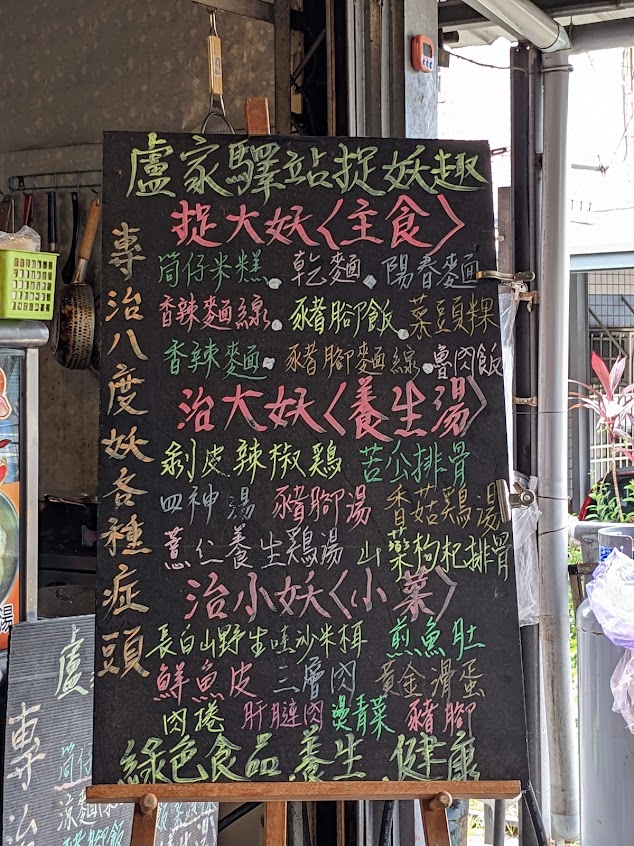 盧家驛站捉妖趣
專治八度妖各種症頭
捉大妖〈主食〉
筒仔米糕、乾麵、陽春麵
香辣麵線、豬腳飯、菜頭粿
香辣麵、豬腳麵線、魯肉飯
治大妖〈養生湯〉
剝皮辣椒鷄 苦瓜排骨
四神湯 豬腳湯 香菇鷄湯
薏仁養生鷄湯 山藥枸杞排骨
治小妖〈小菜〉
長白山野生哇沙米椏 煎魚肚
鮮魚皮 三層肉 黃金滑蛋
肉捲 肝膧肉 燙青菜 豬腳
綠色食品 養生 健康
盧
專治
筒仔
涼麵
豬腳飯